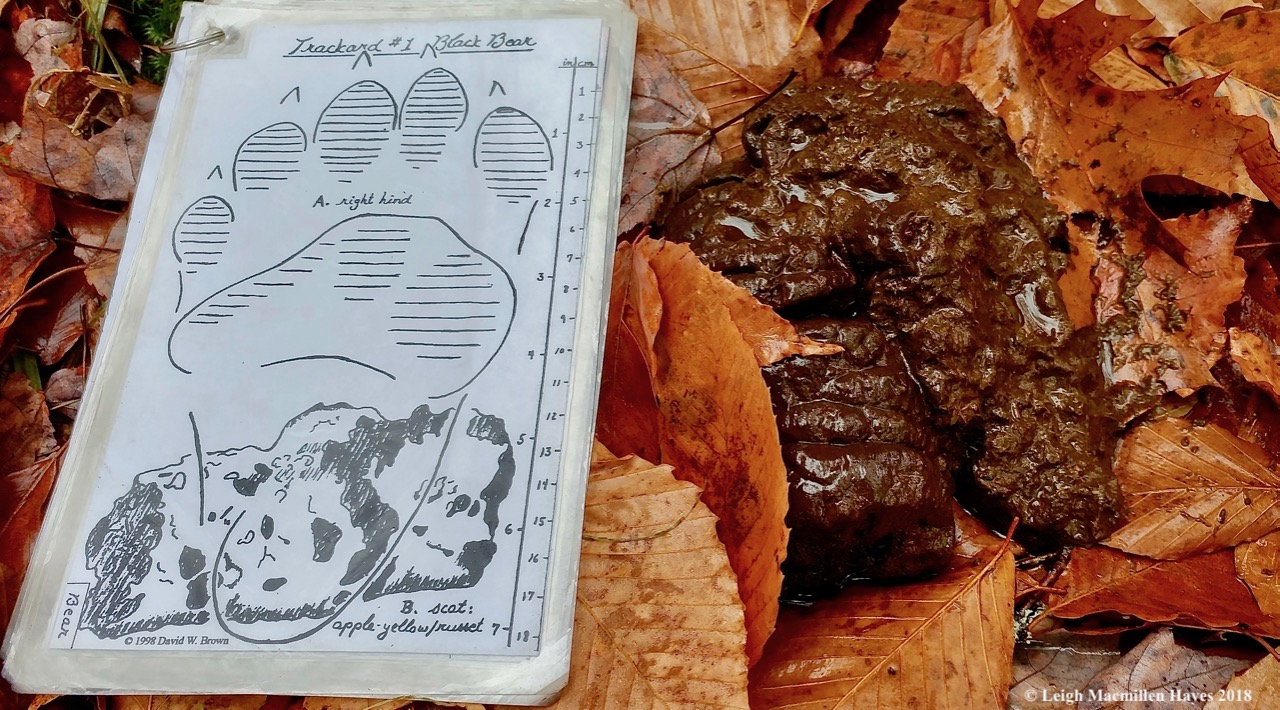 Trackard #1 Black Bear
in/cm
1
2
1
3
4
2
5
6
7
3
8
9
4
10
11
12
5
13
14
15
6
16
17
7
18
A. right hind
B. scat:
apple-yellow/russet
Bear
© 1998 David W. Brown
© Leigh Macmillen Hayes 2018